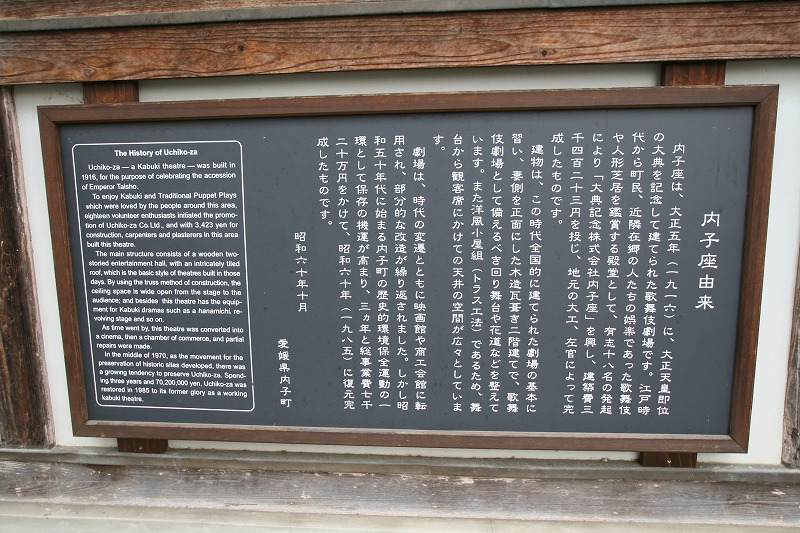 内子座由来
内子座は、大正五年(一九一六)に、大正天皇即位
の大典を記念して建てられた歌舞伎劇場です。江戸時
代から町民、近隣在郷の人たちの娯楽であった歌舞伎
や人形芝居を鑑賞する殿堂として、有志十八名の発起
により「大典記念株式会社内子座」を興し、建築費三
千四百二十三円を投じ、地元の大工、左官によって完
成したものです。
建物は、この時代全国的に建てられた劇場の基本に
習い、妻側を正面にした木造瓦葺き二階建てで、歌舞
伎劇場として備えるべき回り舞台や花道などを整えて
います。また洋風小屋組(トラス工法)であるため、舞
台から観客席にかけての天井の空間が広々としていま
す。
劇場は、時代の変遷とともに映画館や商工会館に転
用され、部分的な改造が繰り返されました。しかし昭
和五十年代に始まる内子町の歴史的環境保全運動の一
環として保存の機運が高まり、三ヵ年と総事業費七千
二十万円をかけて、昭和六十年(一九八五)に復元完
成したものです。
昭和六十年十月
愛媛県内子町
The History of Uchiko-za
Uchiko-za — a Kabuki theatre — was built in
1916, for the purpose of celebrating the accession
of Emperor Taisho.
To enjoy Kabuki and Traditional Puppet Plays
which were loved by the people around this area,
eighteen volunteer enthusiasts initiated the promo-
tion of Uchiko-za Co.Ltd., and with 3,423 yen for
construction, carpenters and plasterers in this area
built this theatre.
The main structure consists of a wooden two-
storied entertainment hall, with an intricately tiled
roof, which is the basic style of theatres built in those
days. By using the truss method of construction, the
ceiling space is wide open from the stage to the
audience; and besides this theatre has the equip-
ment for Kabuki dramas such as a hanamichi, re-
volving stage and so on.
As time went by, this theatre was converted into
a cinema, then a chamber of commerce, and partial
repairs were made.
In the middle of 1970, as the movement for the
preservation of historic sites developed, there was
a growing tendency to preserve Uchiko-za. Spend-
ing three years and 70,200,000 yen, Uchiko-za was
restored in 1985 to its former glory as a working
kabuki theatre.